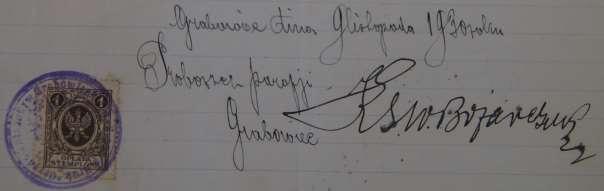 Grabowiec dnia 9 listopada 1930 roku
Proboszcz parafji
Grabowiec
Ks. W. Bojarczuk
1 1
OPŁATA
STEMPLOWA